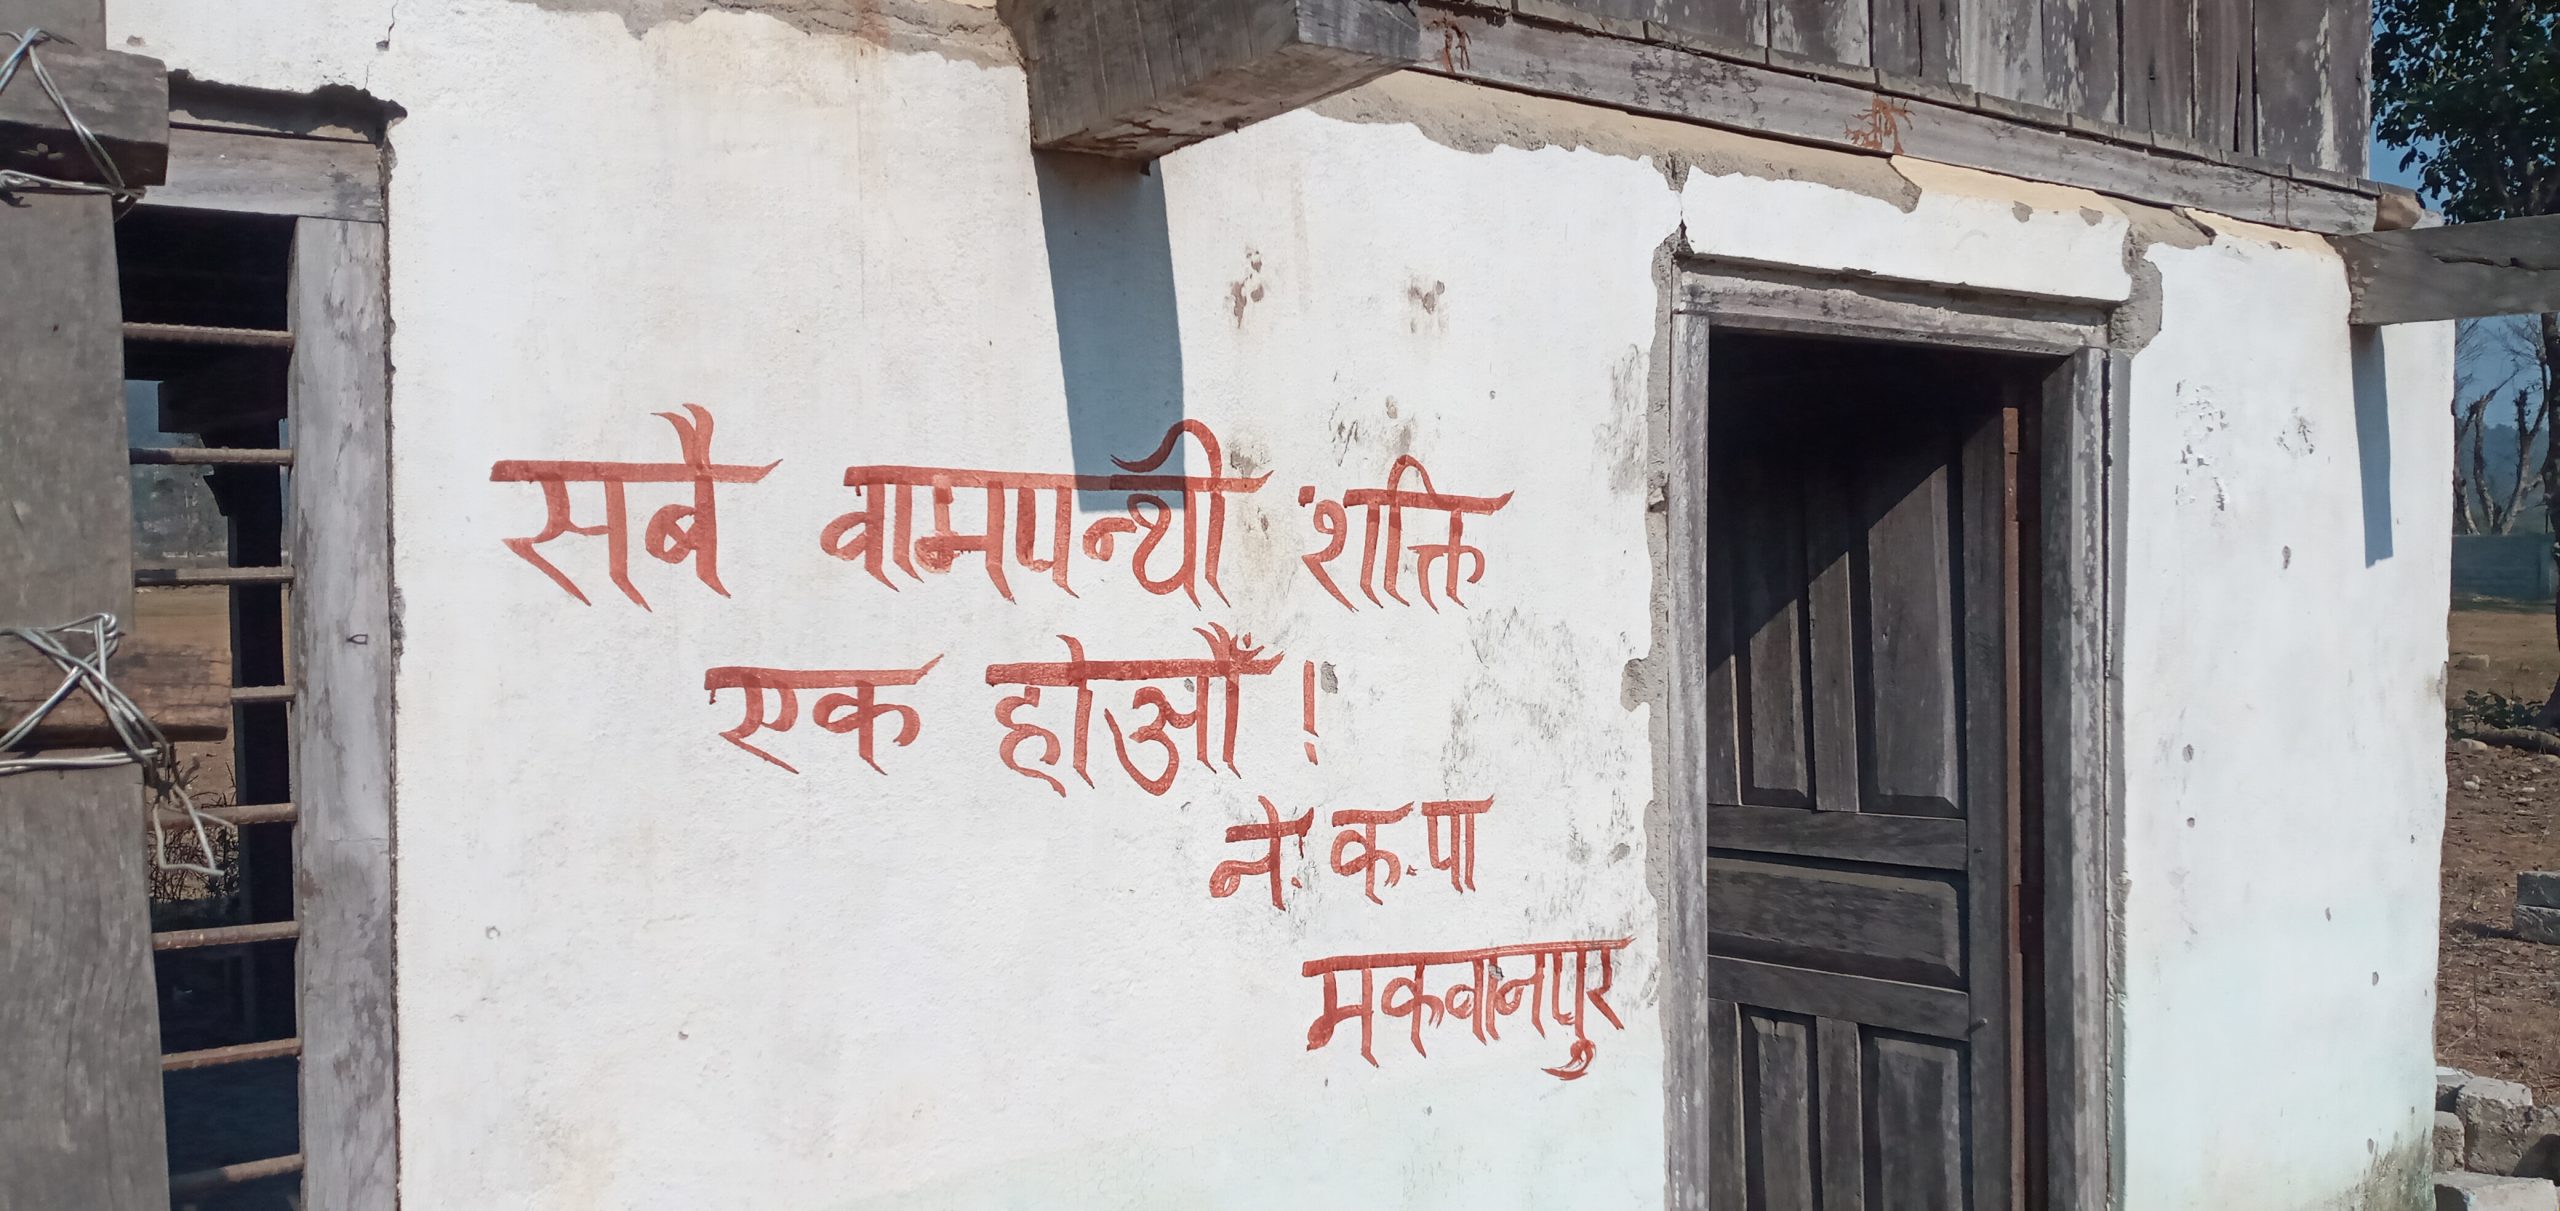 सबै वामपन्थी शक्ति
एक होऔँ !
ने. क. पा
मकवानपुर